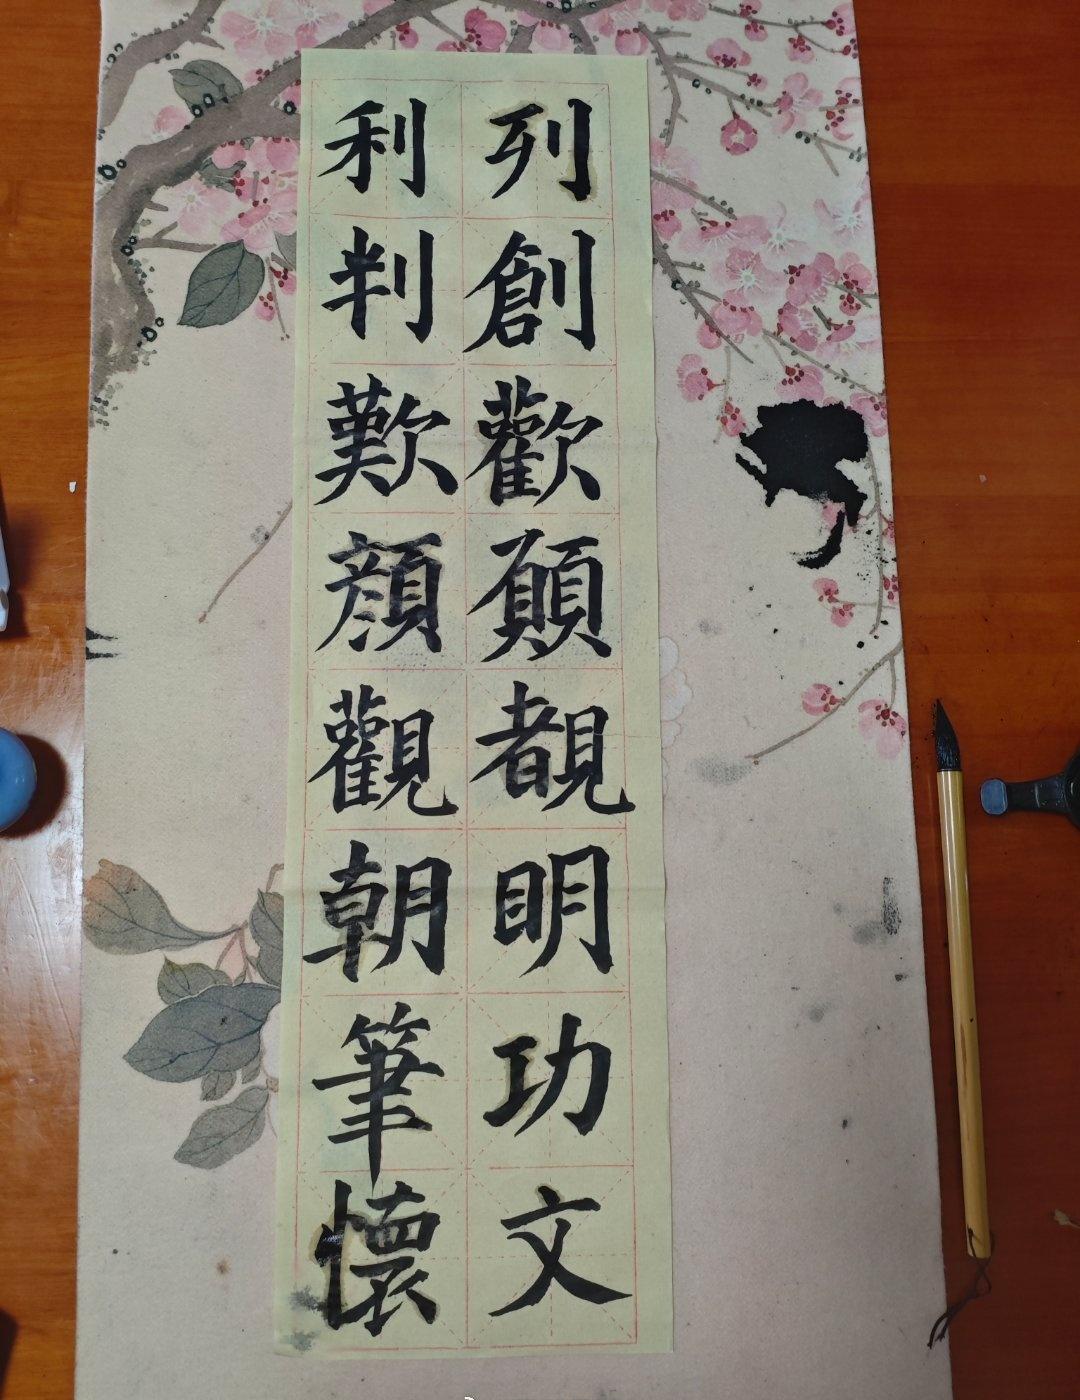 列創歡願覩明功文
利判歎顔觀朝筆懷